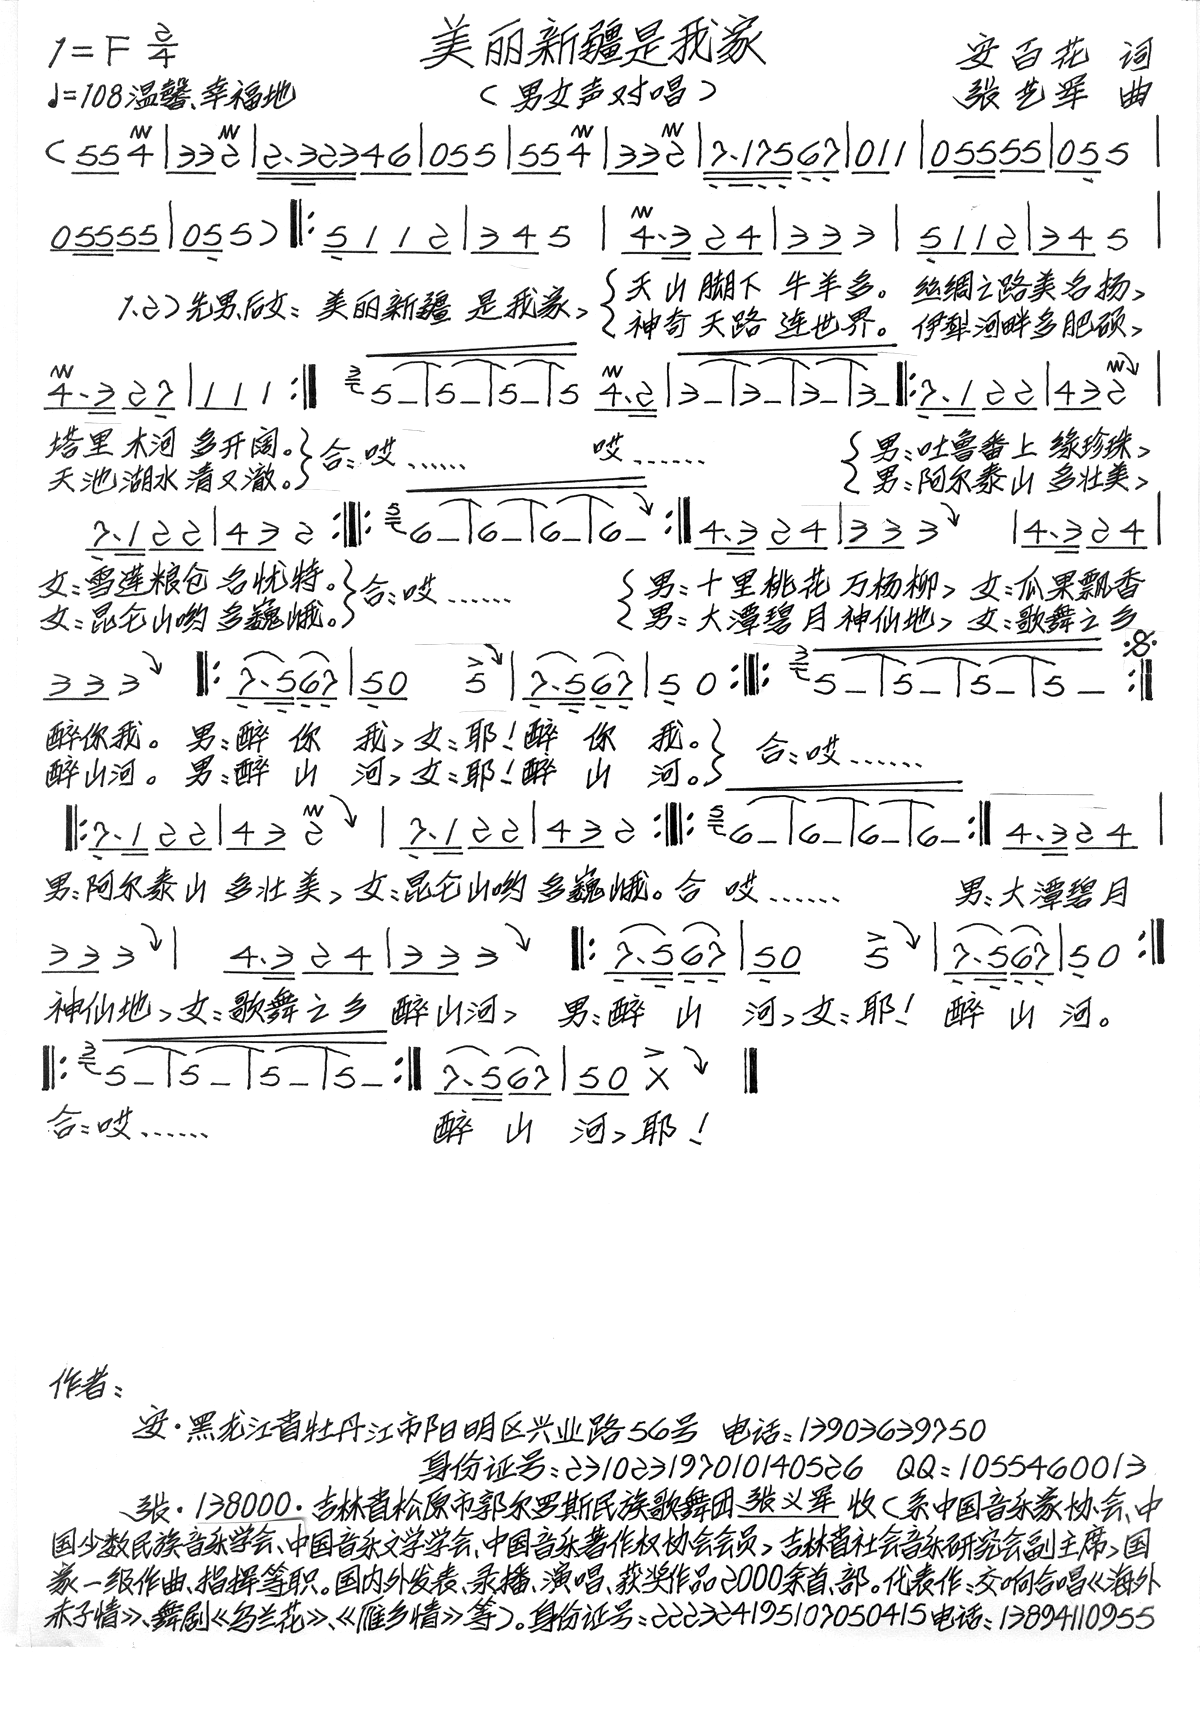 1=F 2/4
美丽新疆是我家
安百花 词
♩=108 温馨、幸福地
(男女声对唱)
张艺军 曲
(554|332|2·32346|055|554|332|7·17567|011|05555|055|
05555|055)‖:5112|345|4·324|333|5112|345|
1.2)先男、后女:美丽新疆 是我家,{天山脚下 牛羊多。丝绸之路美名扬,
{神奇天路 连世界。伊犁河畔多肥硕,
4·327|111:‖5_|5_|5_|5 4·2|3_|3_|3_|3_‖:7·122|432|
塔里木河 多开阔。}合:哎…… 哎…… {男:吐鲁番上 缘珍珠,
天池湖水 清又澈。 {男:阿尔泰山 多壮美,
7·122|432:‖:6_|6_|6_|6_:‖4·324|333 |4·324|
女:雪莲粮仓 名优特。}合:哎…… {男:十里桃花 万杨柳,女:瓜果飘香
女:昆仑山哟 多巍峨。 {男:大潭碧月 神仙地,女:歌舞之乡
333 ‖:7·567|50 5|7·567|50:‖:5_|5_|5_|5_:‖
醉你我。男:醉你 我,女:耶!醉你 我。} 合:哎……
醉山河。男:醉山 河,女:耶!醉山 河。
‖:7·122|432|7·122|432:‖:6_|6_|6_|6_:‖4·324|
男:阿尔泰山 多壮美,女:昆仑山哟 多巍峨。合 哎…… 男:大潭碧月
333| 4·324|333 ‖:7·567|50 5|7·567|50:‖
神仙地,女:歌舞之乡 醉山河, 男:醉山 河,女:耶! 醉山河。
‖:5_|5_|5_|5_:‖7·567|50 X ‖
合:哎…… 醉山 河,耶!
作者:
安·黑龙江省牡丹江市阳明区兴业路56号 电话:13903639750
身份证号:231023197010140526 QQ:1055460013
张·138000·吉林省松原市郭尔罗斯民族歌舞团张义军 收(系中国音乐家协会、中
国少数民族音乐学会、中国音乐文学学会、中国音乐著作权协会会员,吉林省社会音乐研究会副主席,国
家一级作曲、指挥等职。国内外发表、录播、演唱、获奖作品2000余首、部。代表作:交响合唱《海外
赤子情》、舞剧《乌兰花》、《雁乡情》等)。身份证号:222324195107050415 电话:13894110955